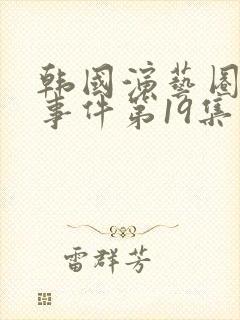 韩國演藝圈
事件第19集
雷群芳